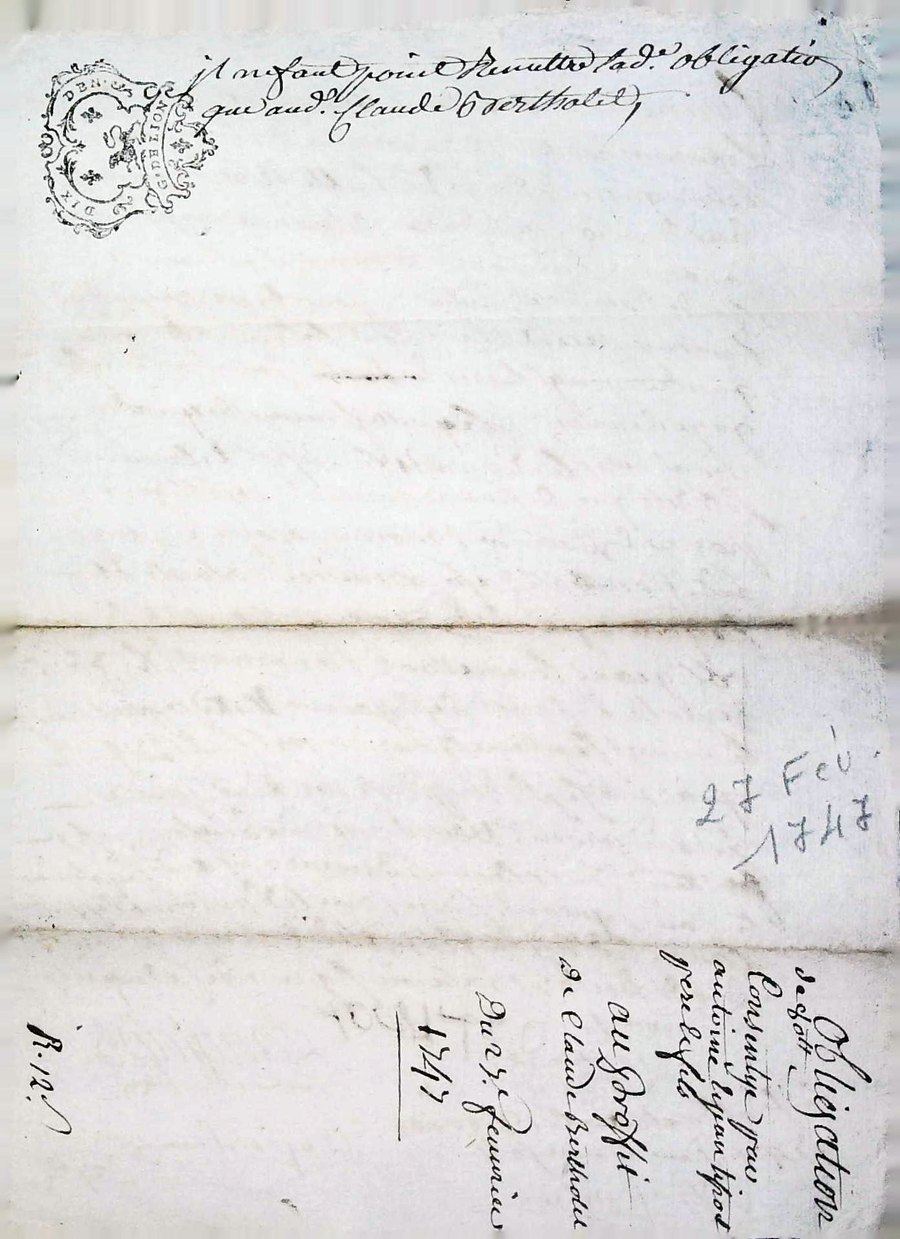 jl ne faut point Remettre lad.e obligatio
que aud.t Claude Berthollet,
DIX DEN.
G. DE LION
27 Fév.
1747
Obligation
de
Consentye par
antoine
pere et fils
au proffit
De Claude Berthollet
Du 27.e feuvrier
1747
R. 12.s